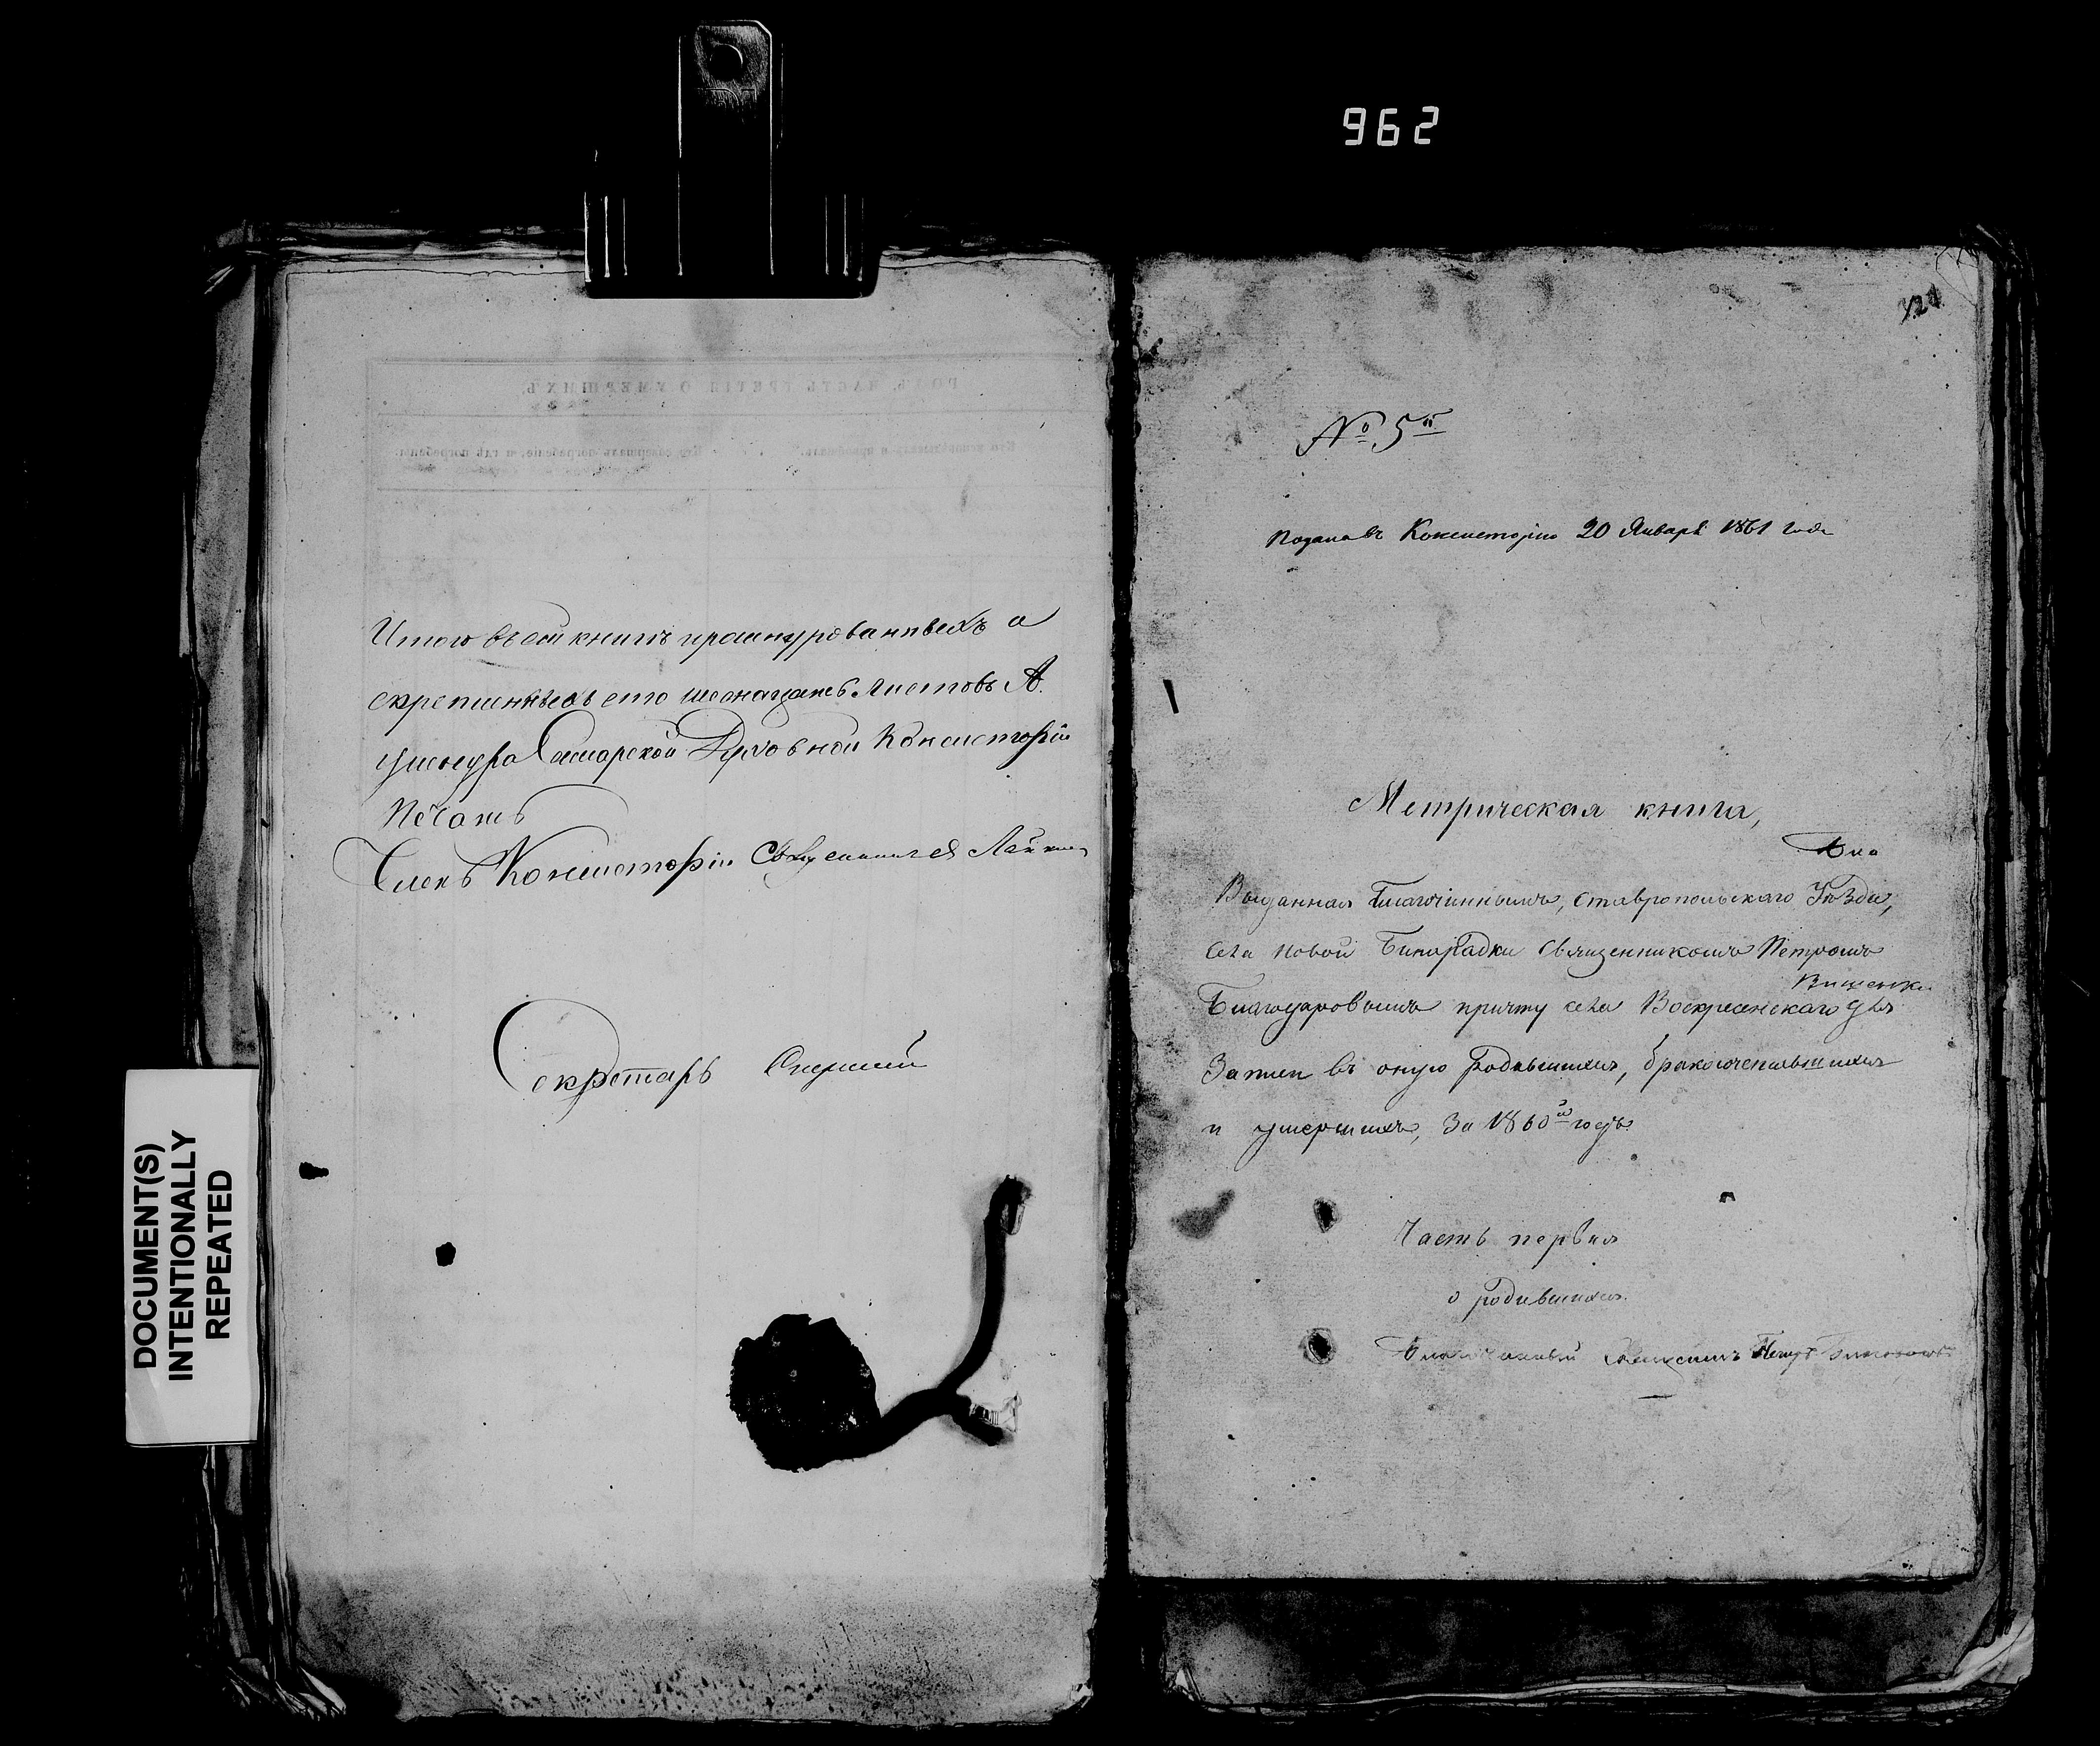 962
DOCUMENT(S)
INTENTIONALLY
REPEATED
Итого въ сей книгѣ прошнурованныхъ и
скрепленныхъ сто шеснадцать листовъ А.
у шнура Самарской Духовной Консисторіи
печать
Членъ Консисторіи Священникъ
Секретарь
№ 5й
Подана въ Консисторію 20 Января 1861 года
Метрическая книга,
Выданная Благочиннымъ, Ставропольскаго Уѣзда,
села Новой Бинорадки Священникомъ Петромъ
Благодаровымъ причту села Воскресенскаго для
записи въ оную родившихся, бракосочетавшихся
и умершихъ, за 1860й годъ.
Часть первая
о родившихся.
Благочинный Священникъ Петръ